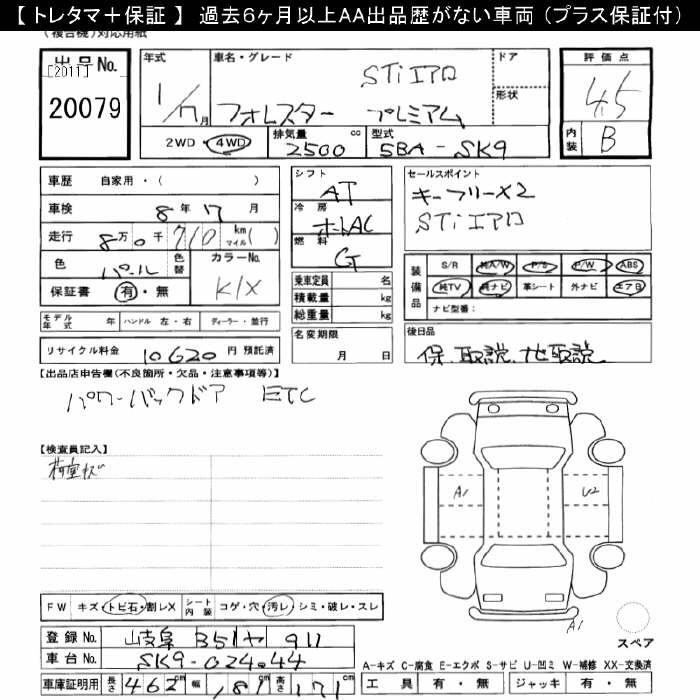 【 トレタマ＋保証 】 過去6ヶ月以上AA出品歴がない車両（プラス保証付）
(複合機)対応用紙
出品No.
[2011]
20079
年式
1/17月
車名・グレード
STiエアロ
フォレスター プレミアム
ドア
形状
評価点
4.5
内装 B
2WD・4WD
排気量 2500 cc
型式 5BA-SK9
車歴 自家用・( )
車検 8年17月
走行 8万0千710 km マイル( )
色 パール 色替
カラーNo. K1X
保証書 有・無
シフト AT
冷房 オートAC
燃料 G
乗車定員 名
積載量 kg
総重量 kg
セールスポイント
キーフリーX2
STiエアロ
装備品
S/R 純A/W P/S P/W ABS
純TV 純ナビ 革シート 外ナビ エアB
ナビ型番:
モデル年式 年 ハンドル 左・右 ディーラー・並行
リサイクル料金 10620 円 預託済
名変期限 月 日
後日品
保.取説.地取説
【出品店申告欄(不良箇所・欠品・注意事項等)】
パワーバックドア ETC
【検査員記入】
荷室キズ
A1 U2
A1
スペア
FW キズ・トビ石・割レX シート内装 コゲ・穴・汚レ・シミ・破レ・スレ
登録No. 岐阜 351ヤ 911
車台No. SK9-024044
車庫証明用 長さ 462cm 幅 181cm 高さ 171cm
A-キズ C-腐食 E-エクボ S-サビ U-凹ミ W-補修 XX-交換済
工具 有・無 ジャッキ 有・無